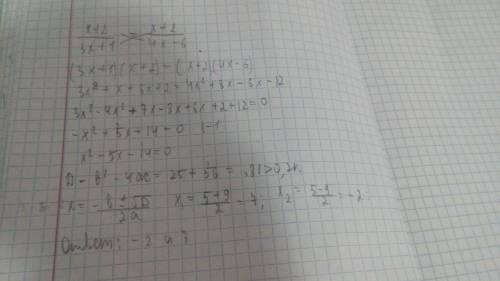 x+2 / 3x+1 = x+2 / 4x-6
(3x+1)(x+2) = (x+2)(4x-6)
3x²+x+6x+2=4x²+8x-6x-12
3x²-4x²+7x-8x+6x+2+12=0
-x²+5x+14=0 |-1
x²-5x-14=0
D=b²-4ac=25+56=81>0, 2к.
x=-b±√D / 2a x₁=5+9 / 2=7; x₂=5-9 / 2=-2
Ответ: -2 и 7